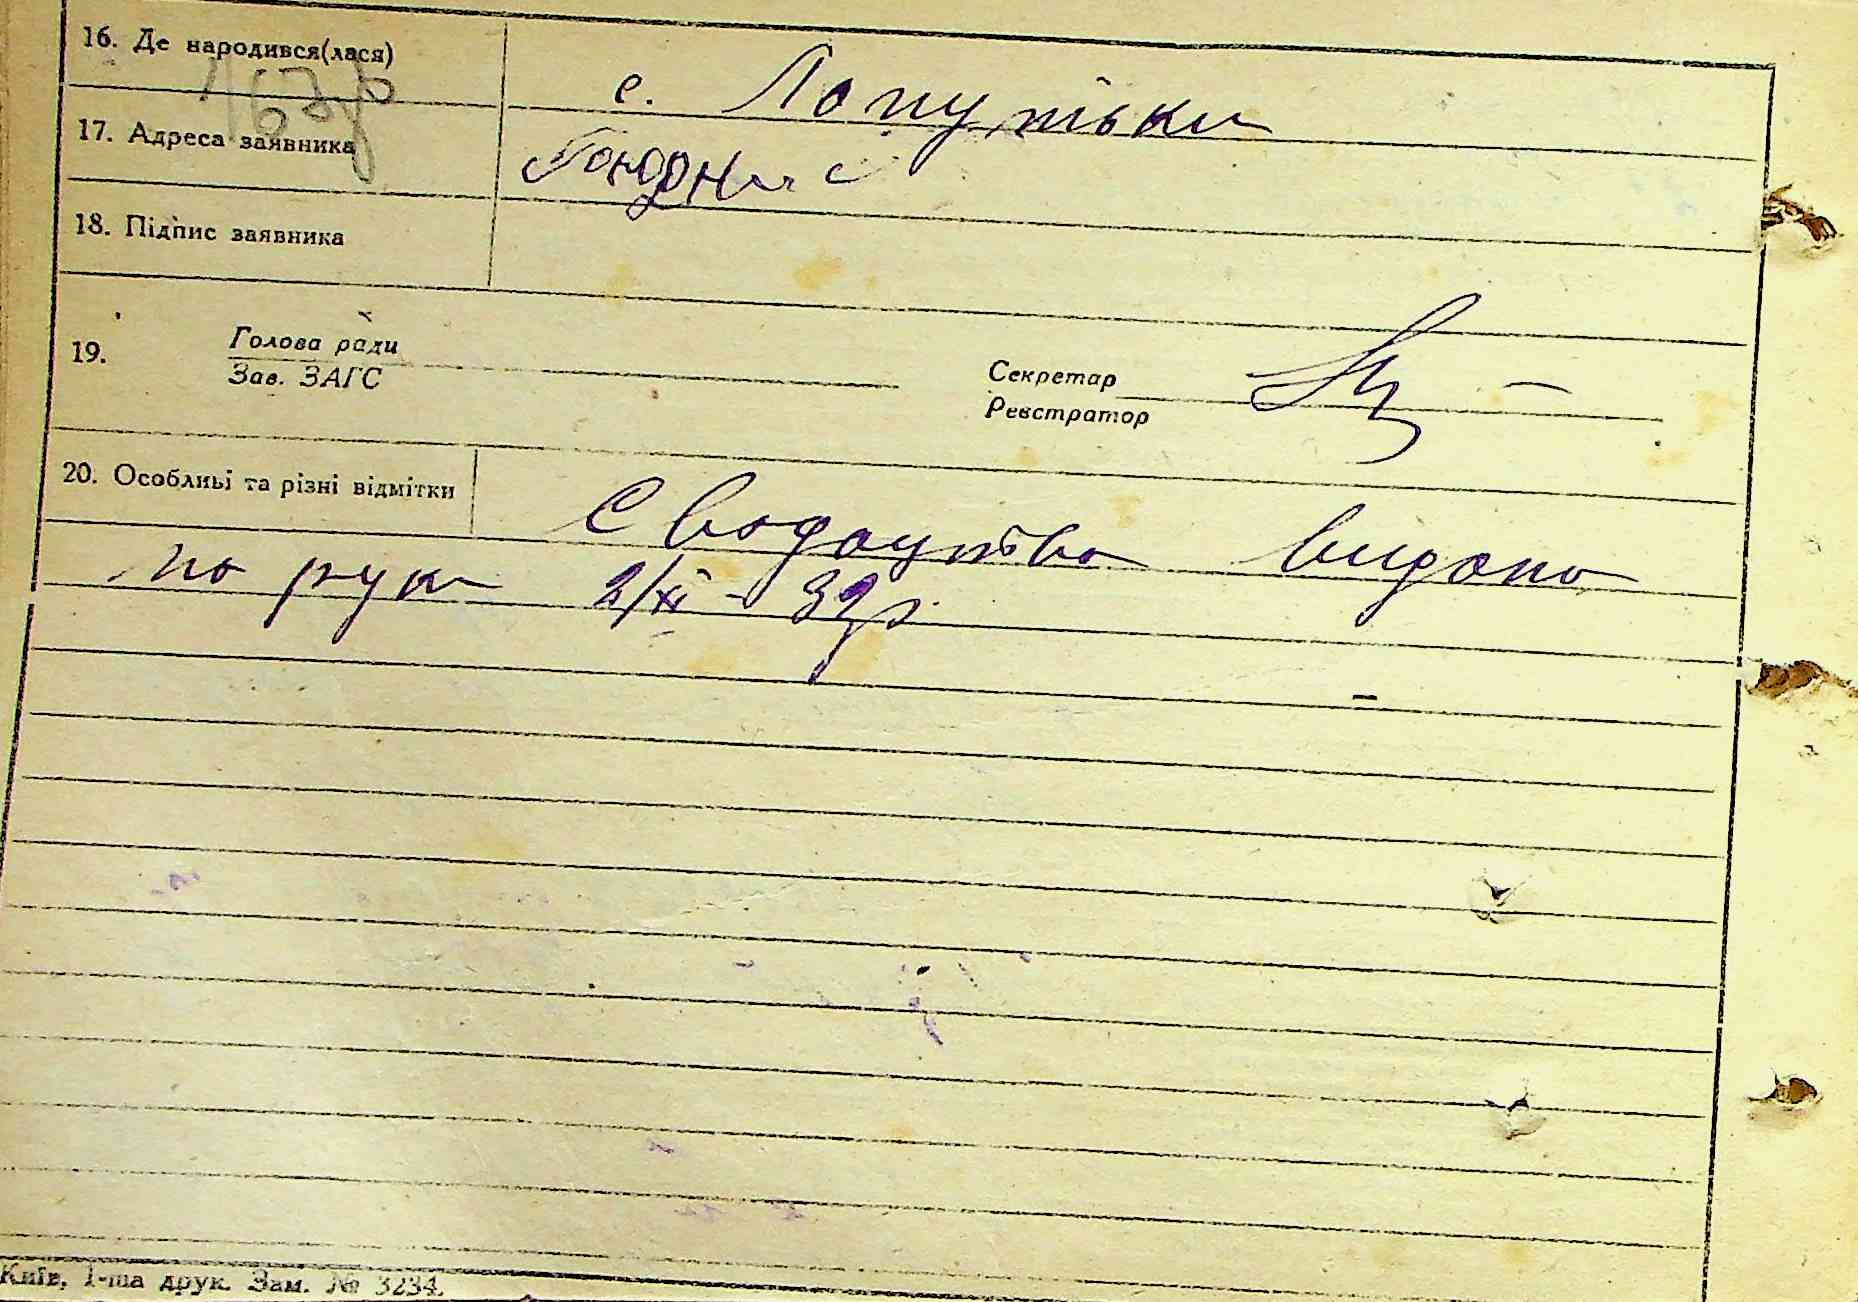 16. Де народився(лася) с. Лопутьки
17. Адреса заявника
18. Підпис заявника
19. Голова ради
Зав. ЗАГС
Секретар
Реєстратор
20. Особливі та різні відмітки Сводоцтво видано
на руки 2/XI - 32 р.
Київ, 1-ша друк. Зам. № 3234.